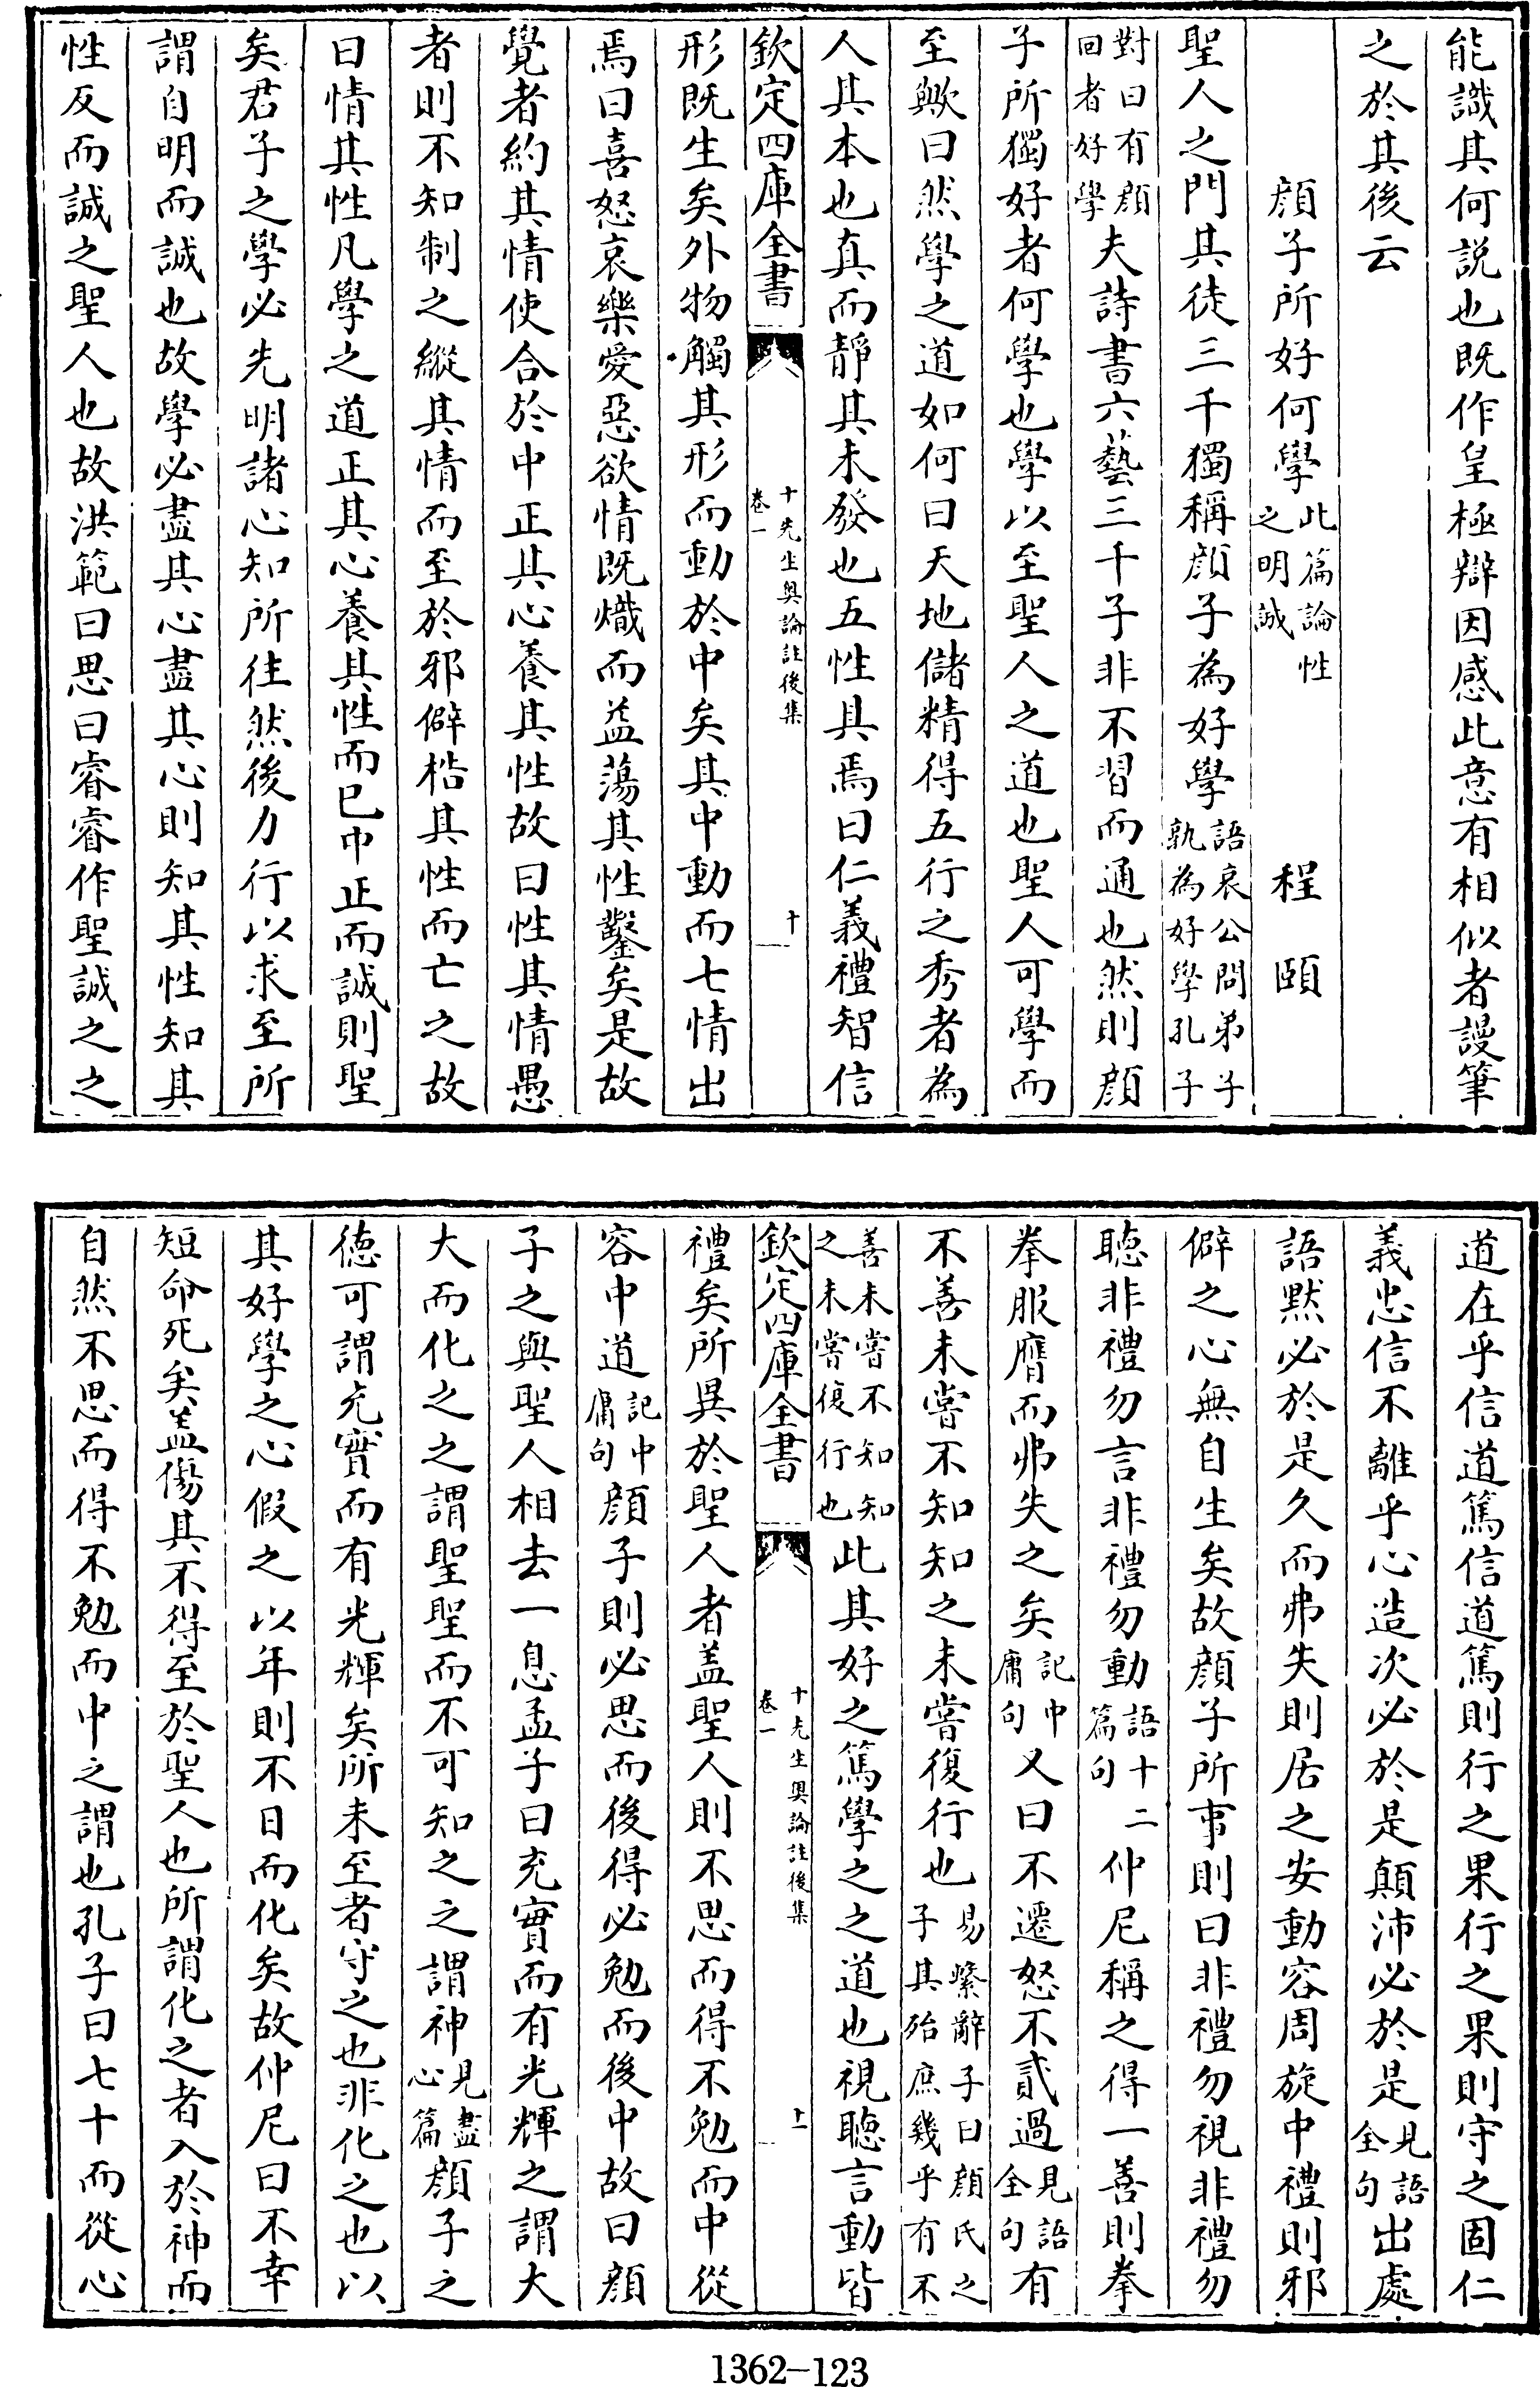 能識其何説也既作皇極辯因感此意有相似者謾筆
之於其後云
顔子所好何學此篇論性之明誠　程頤
聖人之門其徒三千獨稱顔子為好學語哀公問弟子孰為好學孔子
對曰有顔回者好學夫詩書六藝三千子非不習而通也然則顔
子所獨好者何學也學以至聖人之道也聖人可學而
至歟曰然學之道如何曰天地儲精得五行之秀者為
人其本也真而靜其未發也五性具焉曰仁義禮智信
欽定四庫全書　十先生奥論註後集卷一　十
形既生矣外物觸其形而動於中矣其中動而七情出
焉曰喜怒哀樂愛惡欲情既熾而益蕩其性鑿矣是故
覺者約其情使合於中正其心養其性故曰性其情愚
者則不知制之縱其情而至於邪僻梏其性而亡之故
曰情其性凡學之道正其心養其性而已中正而誠則聖
矣君子之學必先明諸心知所往然後力行以求至所
謂自明而誠也故學必盡其心盡其心則知其性知其
性反而誠之聖人也故洪範曰思曰睿睿作聖誠之之
道在乎信道篤信道篤則行之果行之果則守之固仁
義忠信不離乎心造次必於是顛沛必於是見語全句出處
語默必於是久而弗失則居之安動容周旋中禮則邪
僻之心無自生矣故顔子所事則曰非禮勿視非禮勿
聽非禮勿言非禮勿動語十二篇句仲尼稱之得一善則拳
拳服膺而弗失之矣記中庸句又曰不遷怒不貳過見語全句有
不善未嘗不知知之未嘗復行也易繫辭子曰顔氏之子其殆庶幾乎有不
善未嘗不知知之未嘗復行也此其好之篤學之之道也視聽言動皆
欽定四庫全書　十先生奥論註後集卷一　十一
禮矣所異於聖人者盖聖人則不思而得不勉而中從
容中道記中庸句顔子則必思而後得必勉而後中故曰顔
子之與聖人相去一息孟子曰充實而有光輝之謂大
大而化之之謂聖聖而不可知之之謂神見盡心篇顔子之
德可謂充實而有光輝矣所未至者守之也非化之也以
其好學之心假之以年則不日而化矣故仲尼曰不幸
短命死矣盖傷其不得至於聖人也所謂化之者入於神而
自然不思而得不勉而中之謂也孔子曰七十而從心
1362-123